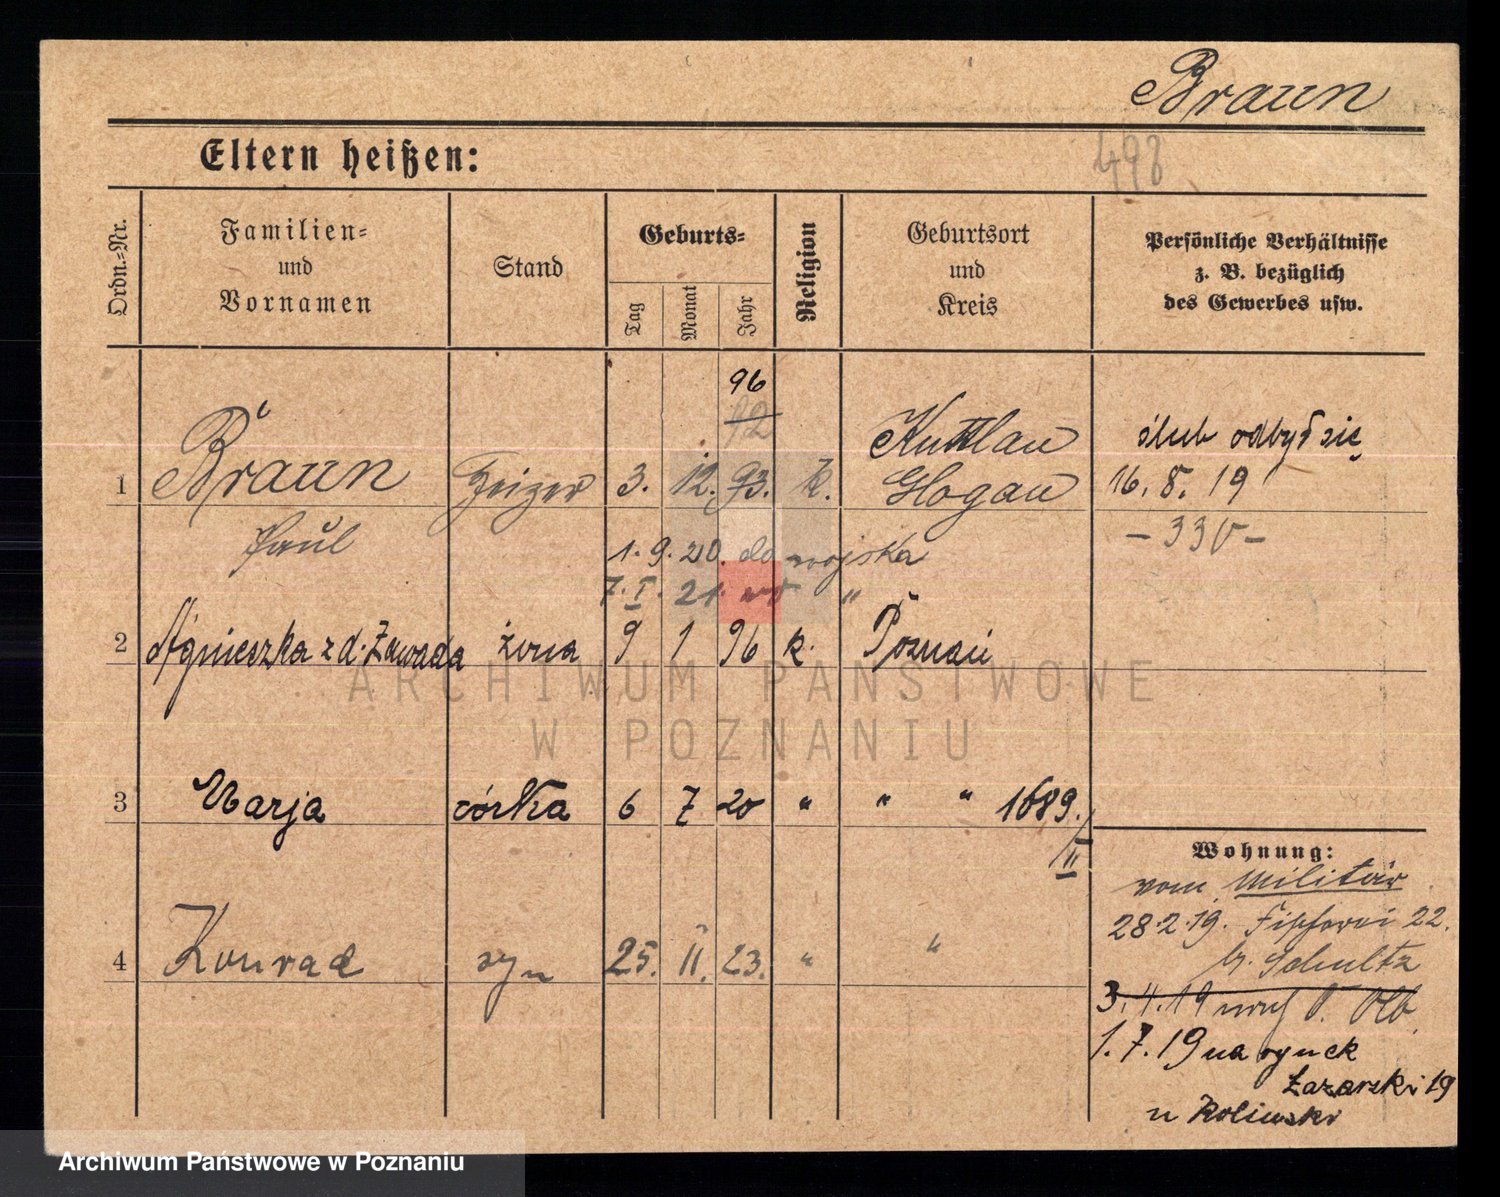 Braun
Eltern heißen:
498
Ordn.-Nr.
Familien-
und
Vornamen
Stand
Geburts-
Tag
Monat
Jahr
Religion
Geburtsort
und
Kreis
Persönliche Verhältnisse
z. B. bezüglich
des Gewerbes usw.
96
92
1 Braun Heizer 3. 12. 93. k. Kuttlau
Glogau
ślub odbył się
16. 8. 19
- 330 -
Paul
1. 9. 20. do wojska
7. I. 21. "
2 Agnieszka z d. Zawada żona 9 1 96 k. Poznań
3 Marja córka 6 7 20 " " " 1689.
II
4 Konrad syn 25. II. 23. " "
Wohnung:
vom Militär
28.2.19. 22.
b. Schultz
3. 4. 19 nach
1. 7. 19 na rynek
Łazarski 19
u Kolinski
ARCHIWUM PAŃSTWOWE
W POZNANIU
Archiwum Państwowe w Poznaniu